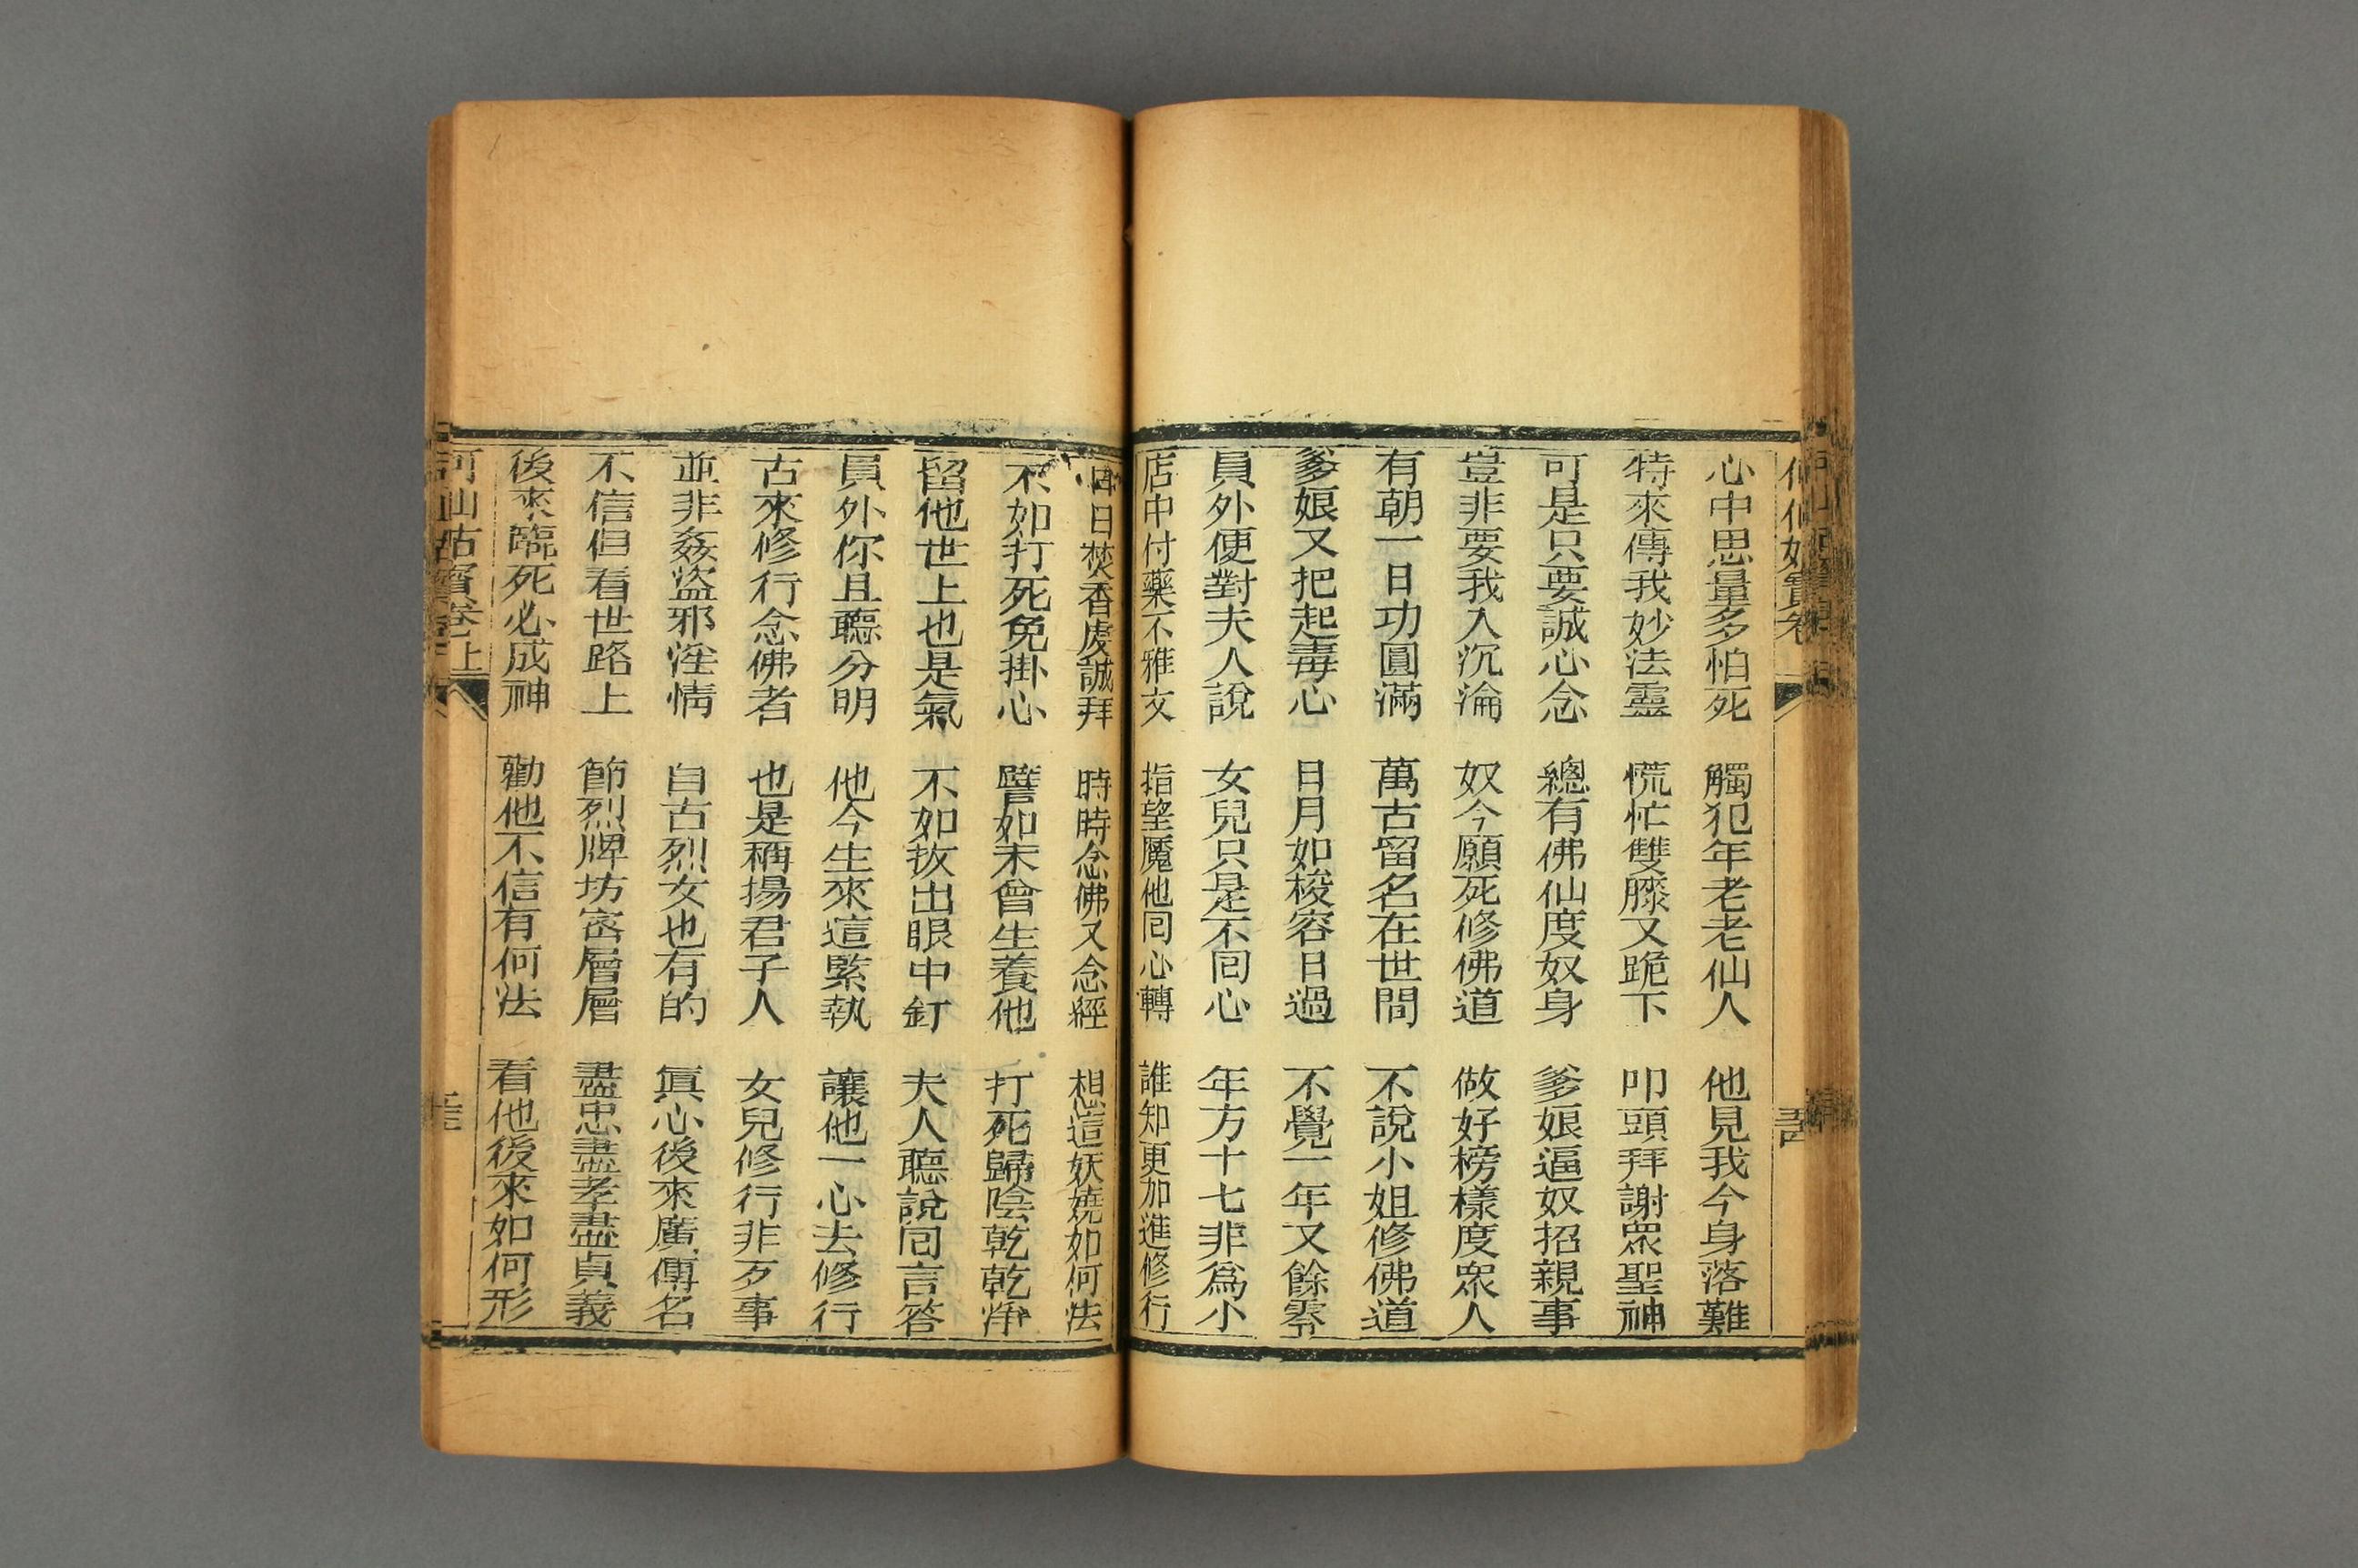 仙姑寶卷
心中思量多怕死 觸犯年老老仙人 他見我今身落難
特來傳我妙法靈 慌忙雙膝又跪下 叩頭拜謝眾聖神
可是只要誠心念 總有佛仙度奴身 爹娘逼奴招親事
豈非要我入沉淪 奴今願死修佛道 做好榜樣度眾人
有朝一日功圓滿 萬古留名在世間 不說小姐修佛道
爹娘又把起毒心 日月如梭容日過 不覺一年又餘零
員外便對夫人說 女兒只是不囘心 年方十七非爲小
店中付藥不雅文 指望魘他囘心轉 誰知更加進修行
日日焚香虔誠拜 時時念佛又念經 想這妖嬈如何法
不如打死免掛心 譬如未曾生養他 打死歸陰乾乾淨
留他世上也是氣 不如拔出眼中釘 夫人聽說囘言答
員外你且聽分明 他今生來這緊執 讓他一心去修行
古來修行念佛者 也是稱揚君子人 女兒修行非歹事
並非姦盜邪淫情 自古烈女也有的 眞心後來廣傳名
不信但看世路上 節烈牌坊密層層 盡忠盡孝盡貞義
後來臨死必成神 勸他不信有何法 看他後來如何形
何仙姑寶卷上